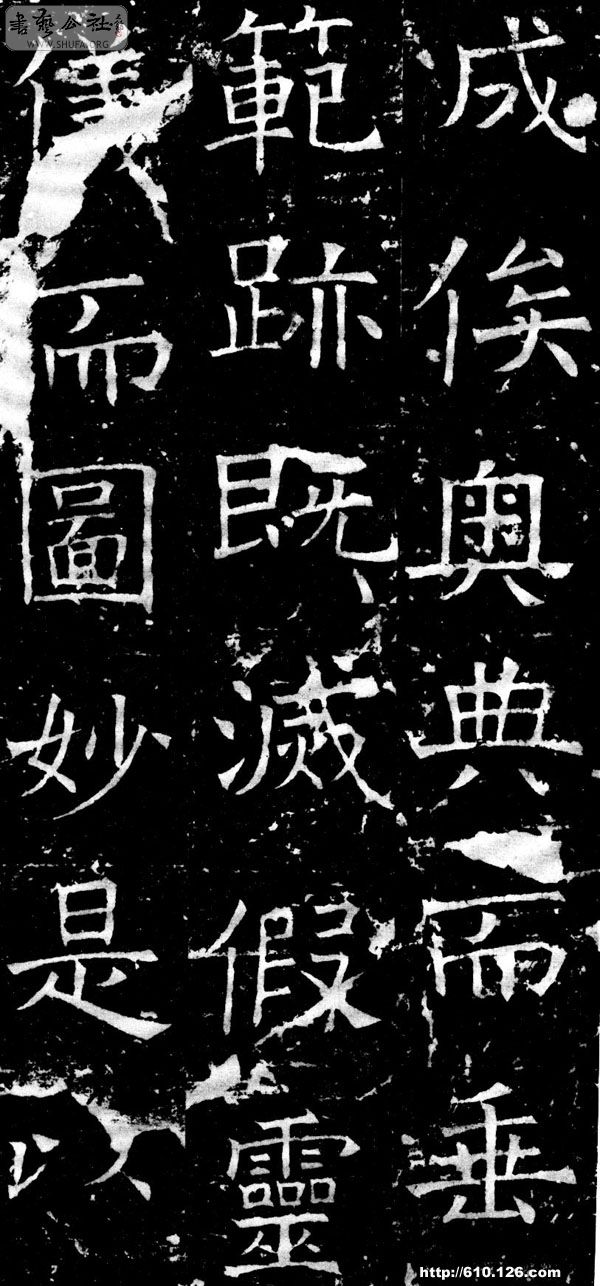 書藝公社
WWW.SHUFA.ORG
成俟奥典而垂
範跡既滅假靈
儀而圖妙是以
http://610.126.com